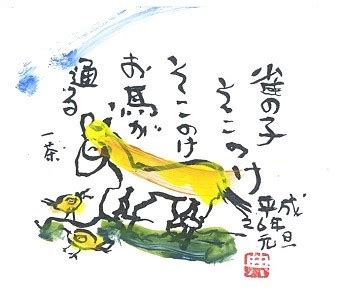 雀の子
そこのけ
そこのけ
お馬が
通る
一茶
平成26年
元旦
典